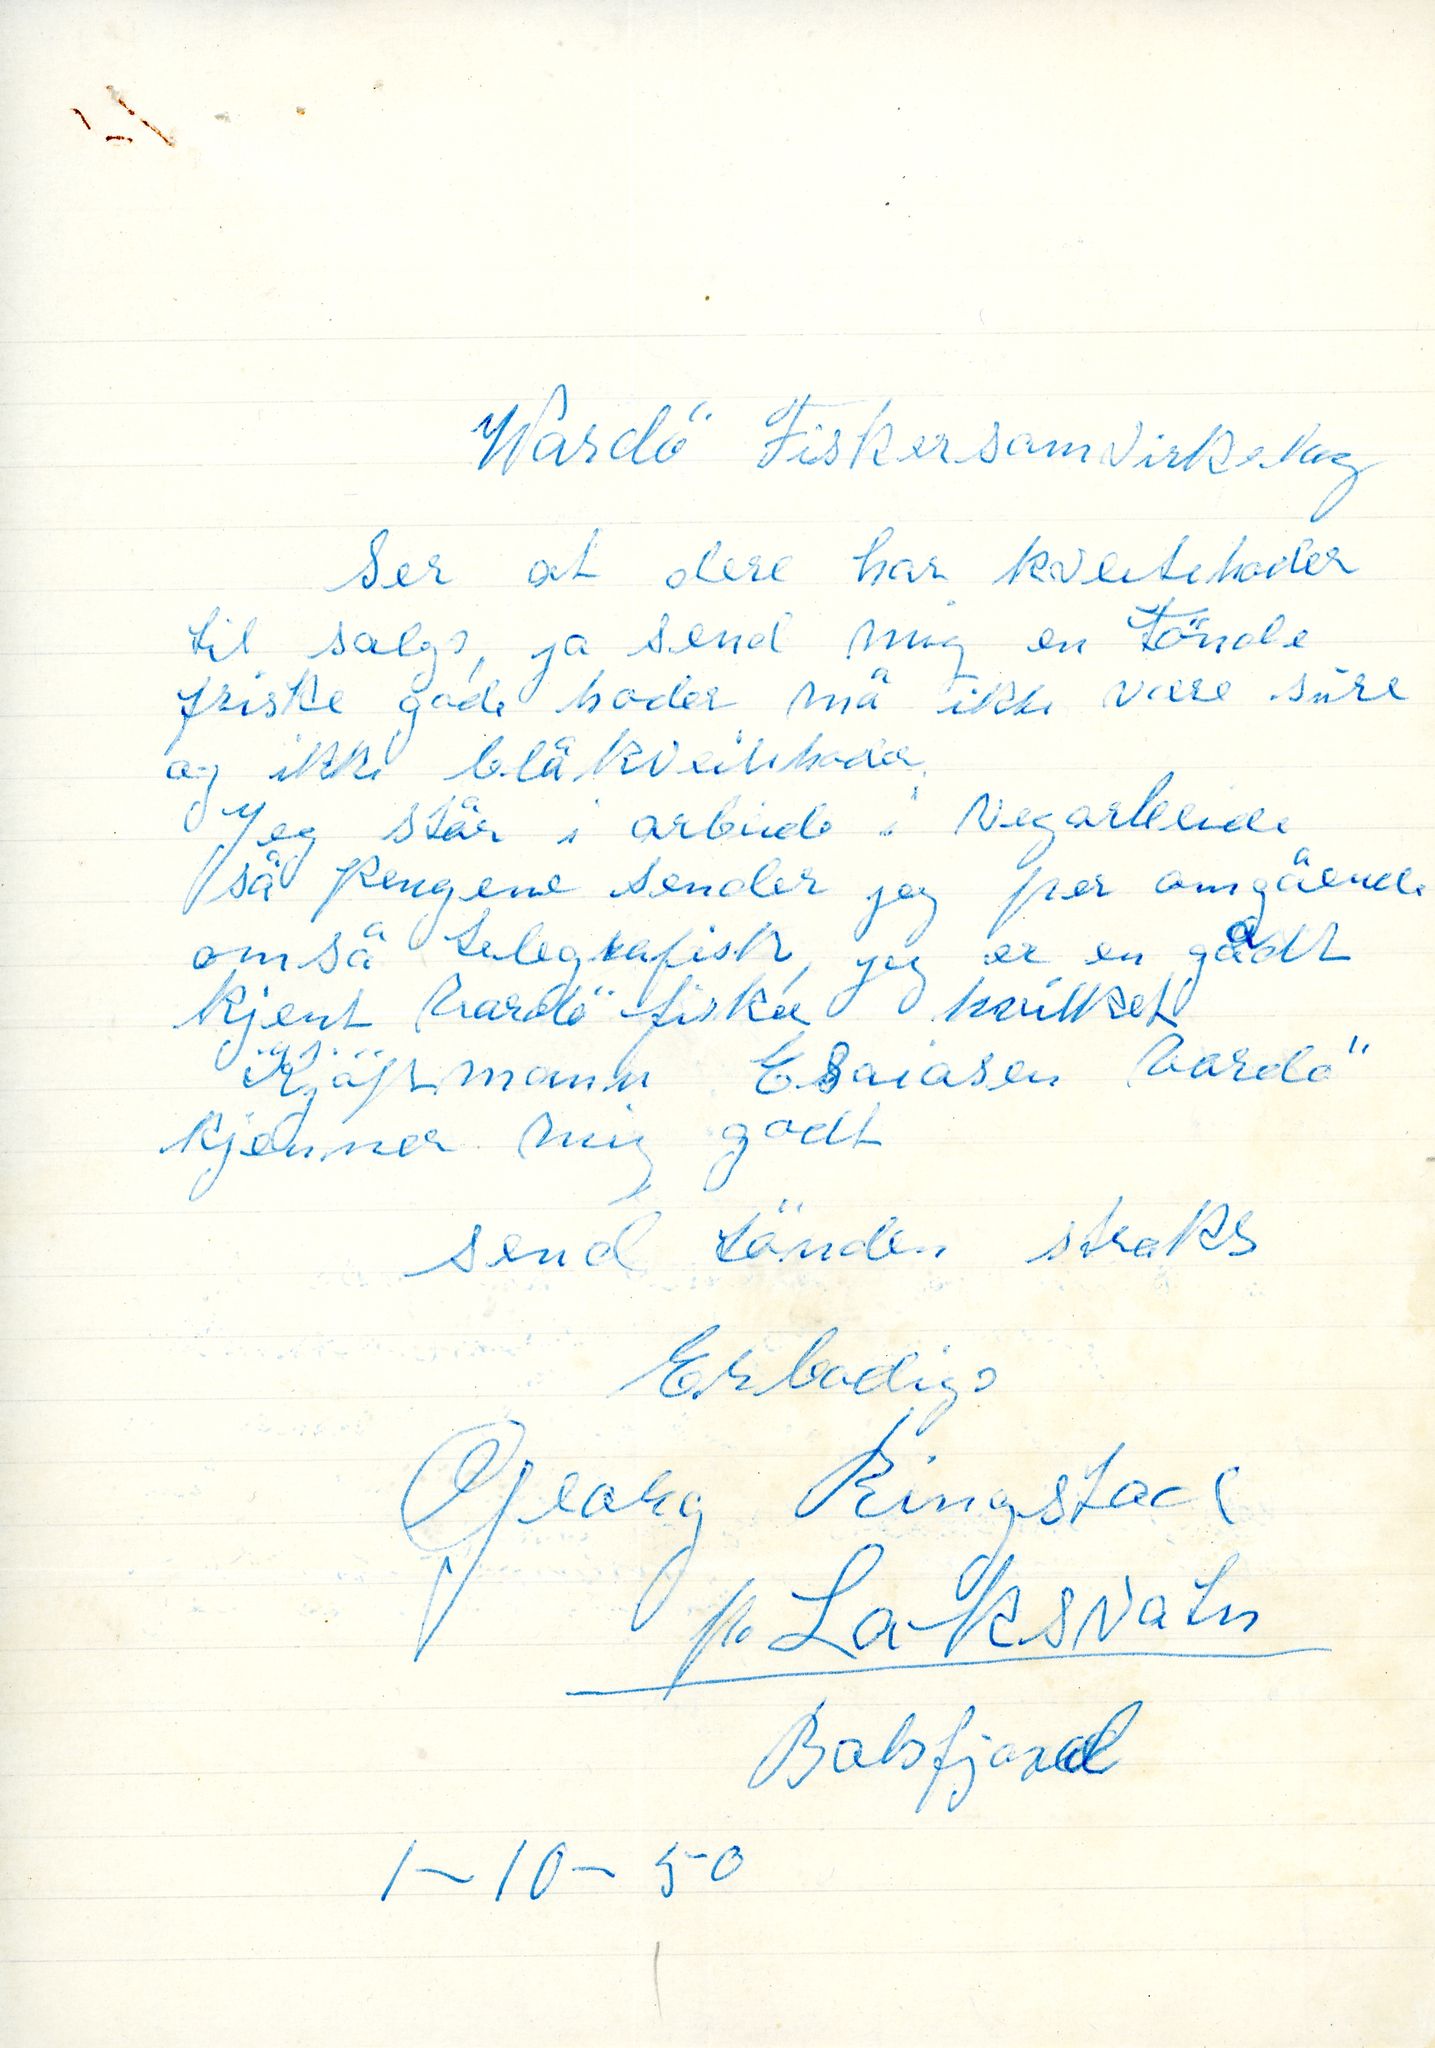 Wardö Fiskersamvirkelag
Ser at dere har kveitehoder
til salgs, ja send mig en tönde
friske gode hoder må ikke være sure
og ikke blåkveitehoder.
Jeg står i arbeide i vegarbeide
så pengene sender jeg per omgående
omså telegrafisk, jeg er en godt
kjent Vardö fisker hvilket
Kjöpmann Esaiasen Vardö
kjenner mig godt
send tönden straks
Erbødigs
Georg Ringstad
p.o Laksvatn
Balsfjord
1-10-50